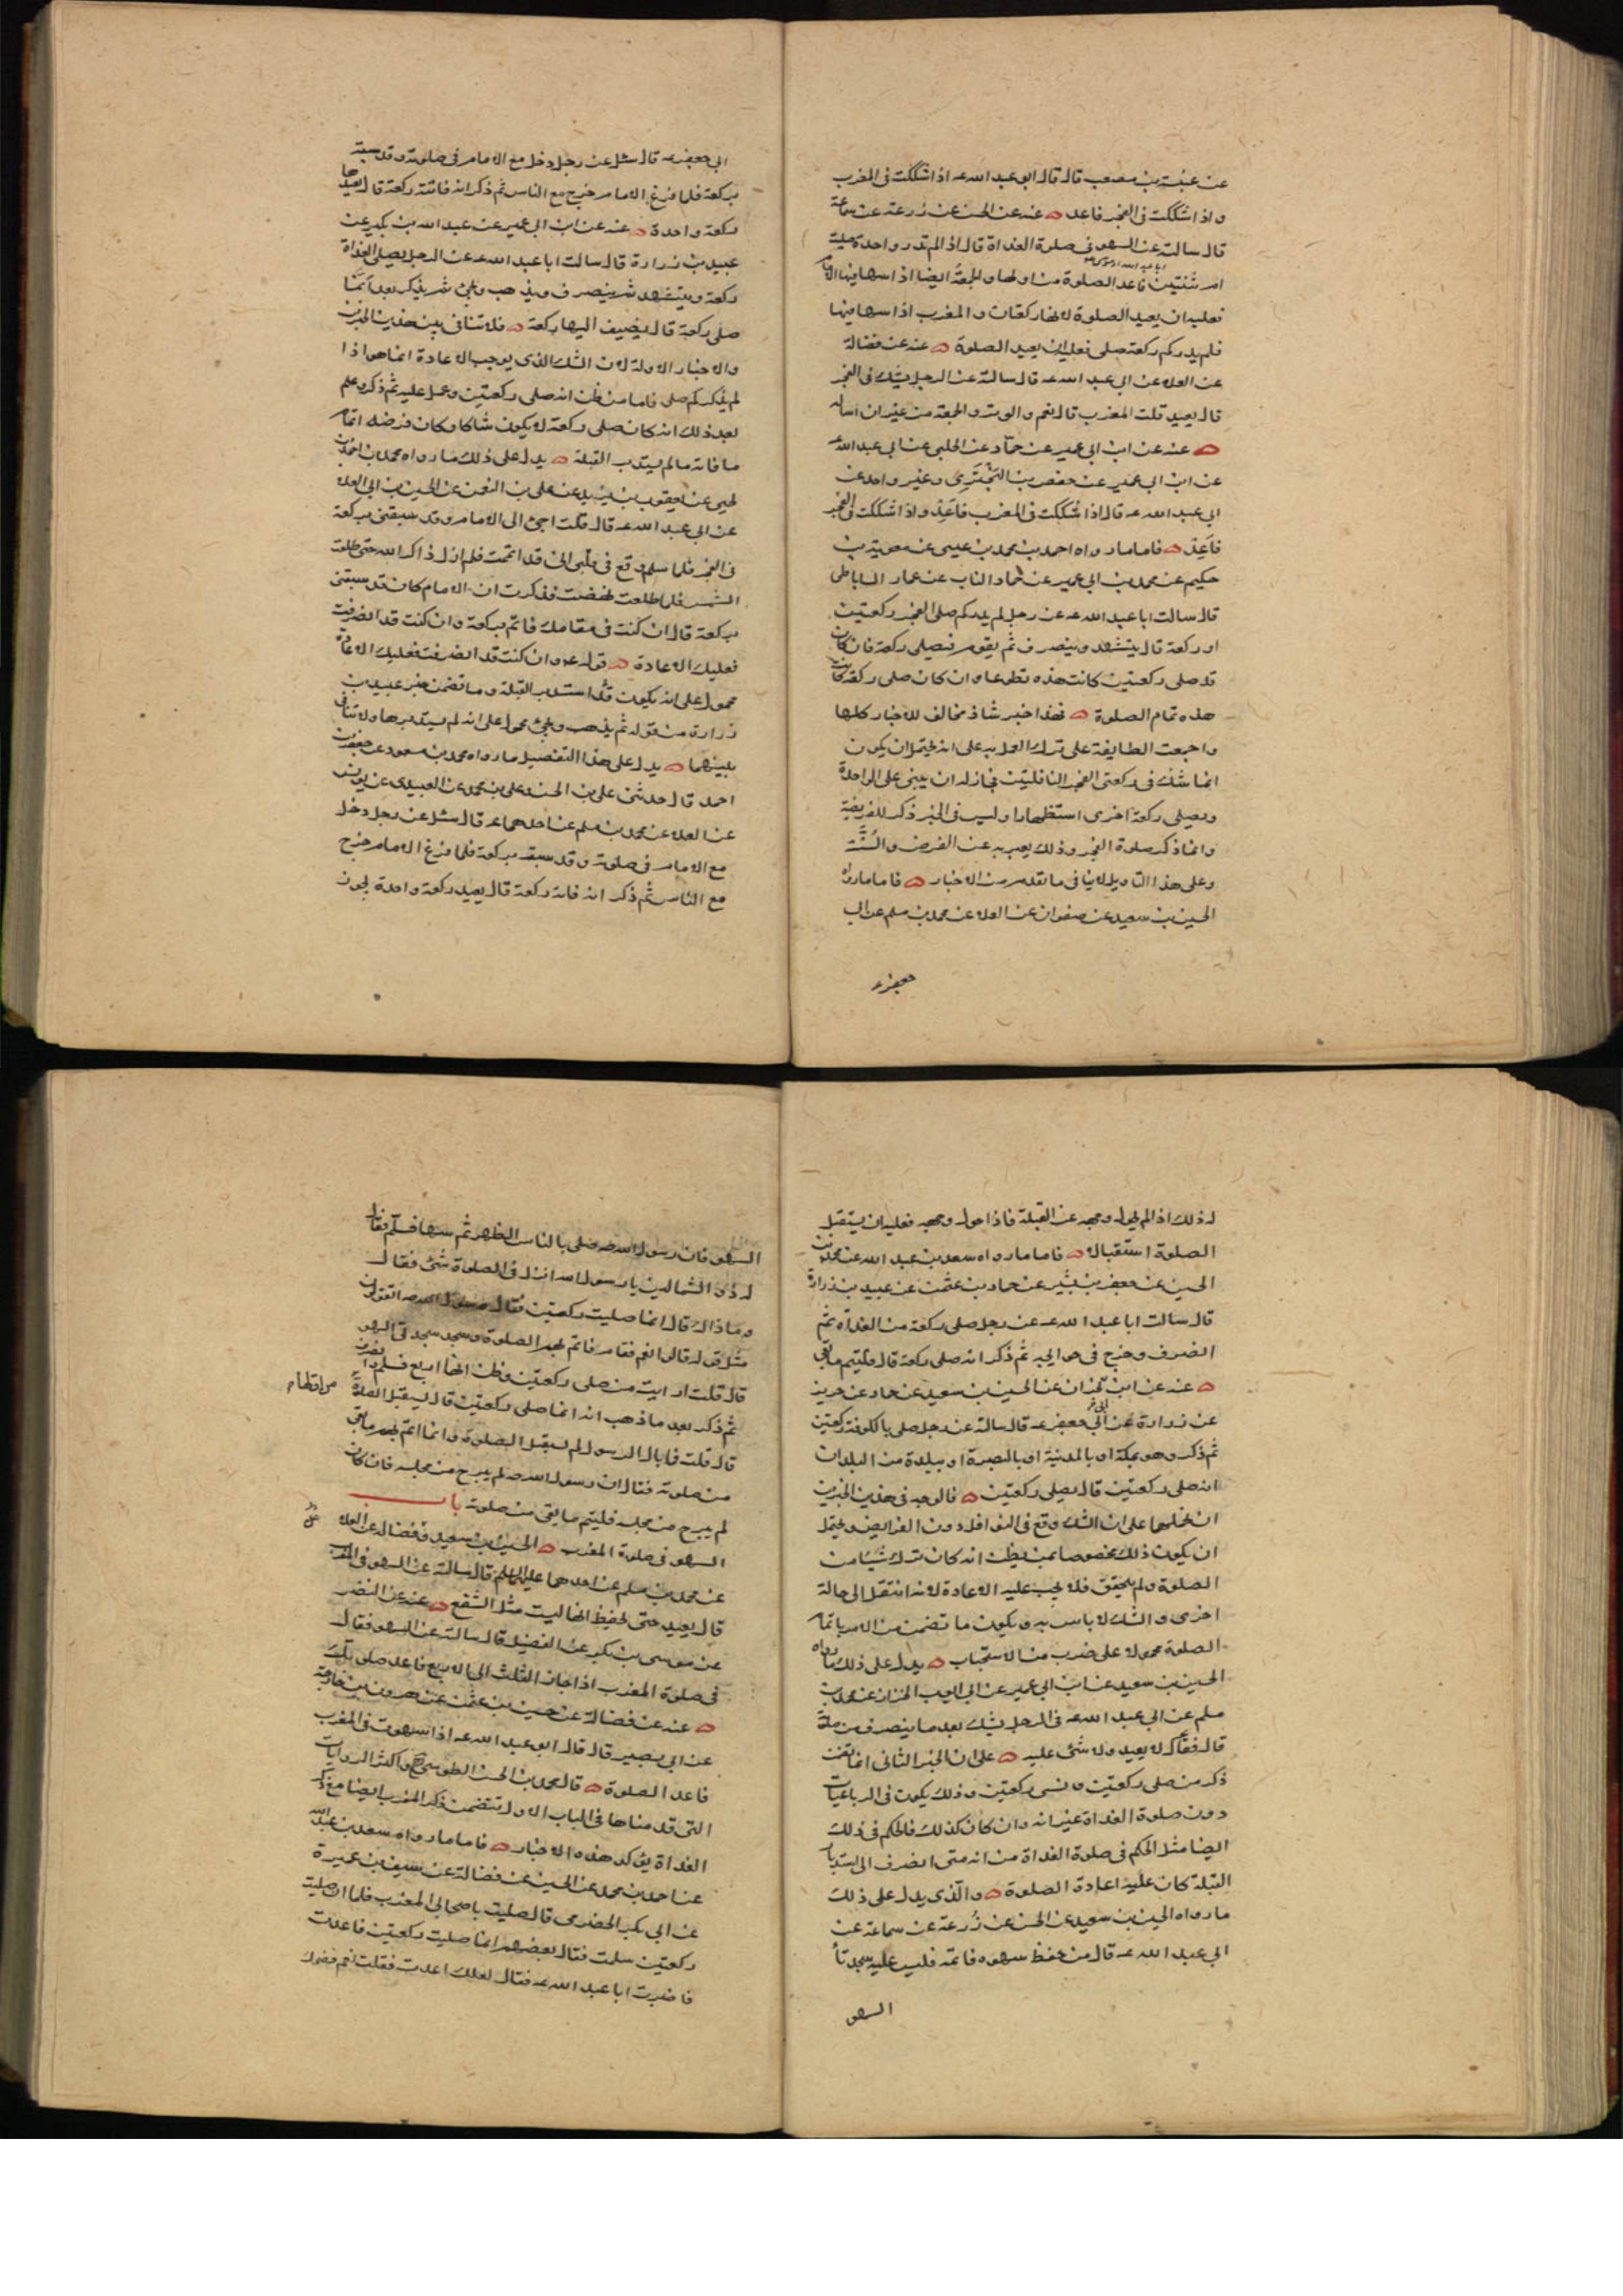 عن عنبسة بن مصعب قال قال ابو عبد الله عه اذا شككت فى المغرب
واذا شككت فى الفجر فاعد عنه عن الحسن عن زرعة عن سماعة
قال سالته عن السهو فى صلوة الغداة قال اذا لم تدر واحدة صليت
ام ثنتين فاعد الصلوة من اولها والجمعة ايضا اذا سها فيها الامام
فعليه ان يعيد الصلوة لانها ركعتان والمغرب اذا سها فيها
فلم يدر كم ركعة صلى فعليه ان يعيد الصلوة عنه عن فضالة
عن العلا عن ابى عبد الله عه قال سالته عن الرجل يشك فى الفجر
قال يعيد قلت المغرب قال نعم والوتر والجمعة من غير ان اساله
عنه عن ابن ابى عمير عن حماد عن الحلبى عن ابى عبد الله عه
عن ابن ابى عمير عن حفص بن البخترى وغير واحد عن
ابى عبد الله عه قال اذا شككت فى المغرب فاعد واذا شككت فى الفجر
فاعد فاما ما رواه احمد بن محمد بن عيسى عن معوية بن
حكيم عن محمد بن ابى عمير عن حماد الناب عن عمار الساباطى
قال سالت ابا عبد الله عه عن رجل لم يدر كم صلى الفجر ركعتين
او ركعة قال يتشهد وينصرف ثم يقوم فيصلى ركعة فان كان
قد صلى ركعتين كانت هذه تطوعا وان كان صلى ركعة كانت
هذه تمام الصلوة فهذا خبر شاذ مخالف للاخبار كلها
واجمعت الطايفة على ترك العمل به على انه يحتمل ان يكون
انما شك فى ركعتى الفجر النافلتين فجاز له ان يبنى على الواحدة
ويصلى ركعة اخرى استظهارا وليس فى الخبر ذكر للفريضة
وانما ذكر صلوة الفجر وذلك يعبر به عن الفرض والسنة
وعلى هذا التاويل لا ينافى ما تقدم من الاخبار فاما ما رواه
الحسين بن سعيد عن صفوان عن العلا عن محمد بن مسلم عن ابى
جعفر عه
ابى جعفر عه قال سئل عن رجل دخل مع الامام فى صلوته وقد سبقه
بركعة فلما فرغ الامام خرج مع الناس ثم ذكر انه فاتته ركعة قال يعيدها
ركعة واحدة عنه عن ابن ابى عمير عن عبد الله بن بكير عن
عبيد بن زرارة قال سالت ابا عبد الله عه عن الرجل يصلى الغداة
ركعة ويتشهد ثم ينصرف ويذهب ويجئ ثم يذكر بعد انما
صلى ركعة قال يضيف اليها ركعة فلا تنافى بين هذين الخبرين
والاخبار الاولة لان الشك الذى يوجب الاعادة انما هو اذا
لم يذكر كم صلى فاما من ظن انه صلى ركعتين وعمل عليه ثم ذكر وعلم
بعد ذلك انه كان صلى ركعة لا يكون شاكا وكان فرضه اتمام
ما فاته ما لم يستدبر القبلة يدل على ذلك ما رواه محمد بن احمد بن
يحيى عن يعقوب بن يزيد عن على بن النعمن عن الحسين بن ابى العلا
عن ابى عبد الله عه قال قلت اجئ الى الامام وقد سبقنى بركعة
فى الفجر فلما سلم وقع فى قلبى انى قد اتممت فلم ازل ذاكر الله حتى طلعت
الشمس فلما طلعت نهضت فذكرت ان الامام كان قد سبقنى
بركعة قال ان كنت فى مقامك فاتم بركعة وان كنت قد انصرفت
فعليك الاعادة قوله عه وان كنت قد انصرفت فعليك الاعادة
محمول على انه يكون قد استدبر القبلة وما تضمن خبر عبيد بن
زرارة من قوله ثم يذهب ويجئ محمول على انه لم يستدبرها ولا تنافى
بينهما يدل على هذا التفصيل ما رواه محمد بن مسعود عن جعفر بن
احمد قال حدثنى على بن الحسن وعلى بن محمد عن العبيدى عن يونس
عن العلا عن محمد بن مسلم عن احدهما عه قال سئل عن رجل دخل
مع الامام فى صلوته وقد سبقه بركعة فلما فرغ الامام خرج
مع الناس ثم ذكر انه فاته ركعة قال يعيد ركعة واحدة يجوز
له ذلك اذا لم يحول وجهه عن القبلة فاذا حول وجهه فعليه ان يستقبل
الصلوة استقبالا فاما ما رواه سعد بن عبد الله عن محمد بن
الحسين عن جعفر بن بشير عن حماد بن عثمن عن عبيد بن زرارة
قال سالت ابا عبد الله عه عن رجل صلى ركعة من الغداة ثم
انصرف وخرج فى حوايجه ثم ذكر انه صلى ركعة قال فليتم ما بقى
عنه عن ابن ابى نجران عن الحسين بن سعيد عن حماد عن حريز
عن زرارة عن ابى جعفر عه قال سالته عن رجل صلى بالكوفة ركعتين
ثم ذكر وهو بمكة او بالمدينة او بالبصرة او ببلدة من البلدان
انه صلى ركعتين قال يصلى ركعتين فالوجه فى هذين الخبرين
ان نحملهما على ان الشك وقع فى النوافل دون الفرايض ويحتمل
ان يكون ذلك مخصوصا بمن يظن انه كان ترك شيئا من
الصلوة ولم يتحقق فلا يجب عليه الاعادة لانه انتقل الى حالة
اخرى والشك لا باس به ويكون ما تضمن من الامر باتمام
الصلوة محمولا على ضرب من الاستحباب يدل على ذلك ما رواه
الحسين بن سعيد عن ابن ابى عمير عن ابى ايوب الخزاز عن محمد بن
مسلم عن ابى عبد الله عه فى الرجل يشك بعد ما ينصرف من صلوته
قال فقال لا يعيد ولا شئ عليه على ان الخبر الثانى انما تضمن
ذكر من صلى ركعتين ونسى ركعتين وذلك يكون فى الرباعيات
دون صلوة الغداة غير انه وان كان كذلك فالحكم فى ذلك
ايضا مثل الحكم فى صلوة الغداة من انه متى انصرف الى استدبار
القبلة كان عليه اعادة الصلوة والذى يدل على ذلك
ما رواه الحسين بن سعيد عن الحسن عن زرعة عن سماعة عن
ابى عبد الله عه قال من حفظ سهوه فاتمه فليس عليه سجدتا
السهو
السهو فان رسول الله صه صلى بالناس الظهر ثم سها فسلم فقال
له ذو الشمالين يا رسول الله انزل فى الصلوة شئ فقال
وما ذاك قال انما صليت ركعتين فقال رسول الله صه اتقولون
مثل قوله قالوا نعم فقام فاتم بهم الصلوة وسجد سجدتى السهو
قال قلت ارايت من صلى ركعتين وظن انها اربع فسلم وانصرف
ثم ذكر بعد ما ذهب انه انما صلى ركعتين قال يستقبل الصلوة من اولها
قال قلت فما بال الرسول لم يستقبل الصلوة وانما اتم بهم ما بقى
من صلوته فقال ان رسول الله صه لم يبرح من مجلسه فان كان
لم يبرح من مجلسه فليتم ما بقى من صلوته باب
السهو فى صلوة المغرب الحسين بن سعيد وفضالة عن العلا
عن محمد بن مسلم عن احدهما عليهما السلم قال سالته عن السهو فى المغرب
قال يعيد حتى يحفظ انها ليست مثل الشفع عنه عن النضر
عن موسى بن بكر عن الفضيل قال سالته عن السهو فقال
فى صلوة المغرب اذا جاز الثلث الى الاربع فاعد صلوتك
عنه عن فضالة عن حسين بن عثمن عن هرون بن خارجة
عن ابى بصير قال قال ابو عبد الله عه اذا سهوت فى المغرب
فاعد الصلوة قال محمد بن الحسن الطوسى واكثر الروايات
التى قدمناها فى الباب الاول تتضمن ذكر المغرب ايضا مع ذكر
الغداة يؤكد هذه الاخبار فاما ما رواه سعد بن عبد الله
عن احمد بن محمد عن الحسين عن فضالة عن سيف بن عميرة
عن ابى بكر الحضرمى قال صليت باصحابى المغرب فلما ان صليت
ركعتين سلمت فقال بعضهم انما صليت ركعتين فاعدت
فاخبرت ابا عبد الله عه فقال لعلك اعدت فقلت نعم فضحك